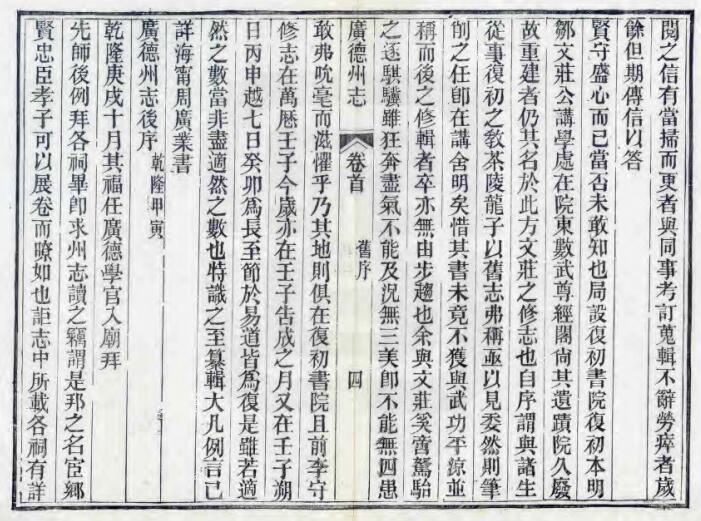 閱之信有當掃而更者與同事考訂蒐輯不辭勞瘁者歲
餘但期傳信以答
賢守盛心而已當否未敢知也局設復初書院復初本明
鄒文莊公講學處在院東數武尊經閣尙其遺蹟院久廢
故重建者仍其名於此方文莊之修志也自序謂與諸生
從事復初之敎茶陵龍子以舊志弗稱亟以見委然則筆
削之任卽在講舍明矣惜其書未竟不獲與武功平涼並
稱而後之修輯者卒亦無由步趨也余與文莊奚啻駑駘
之逐騏驥雖狂奔盡氣不能及況無三美卽不能無四患
廣德州志 卷首 舊序 四
敢弗吮毫而滋懼乎乃其地則俱在復初書院且前李守
修志在萬歷壬子今歲亦在壬子告成之月又在壬子朔
日丙申越七日癸卯爲長至節於易道皆爲復是雖若適
然之數當非盡適然之數也特識之至纂輯大凡例言已
詳海甯周廣業書
廣德州志後序 乾隆甲寅
乾隆庚戌十月其福任廣德學官入廟拜
先師後例拜各祠畢卽求州志讀之竊謂是邦之名宦鄉
賢忠臣孝子可以展卷而瞭如也詎志中所載各祠有詳